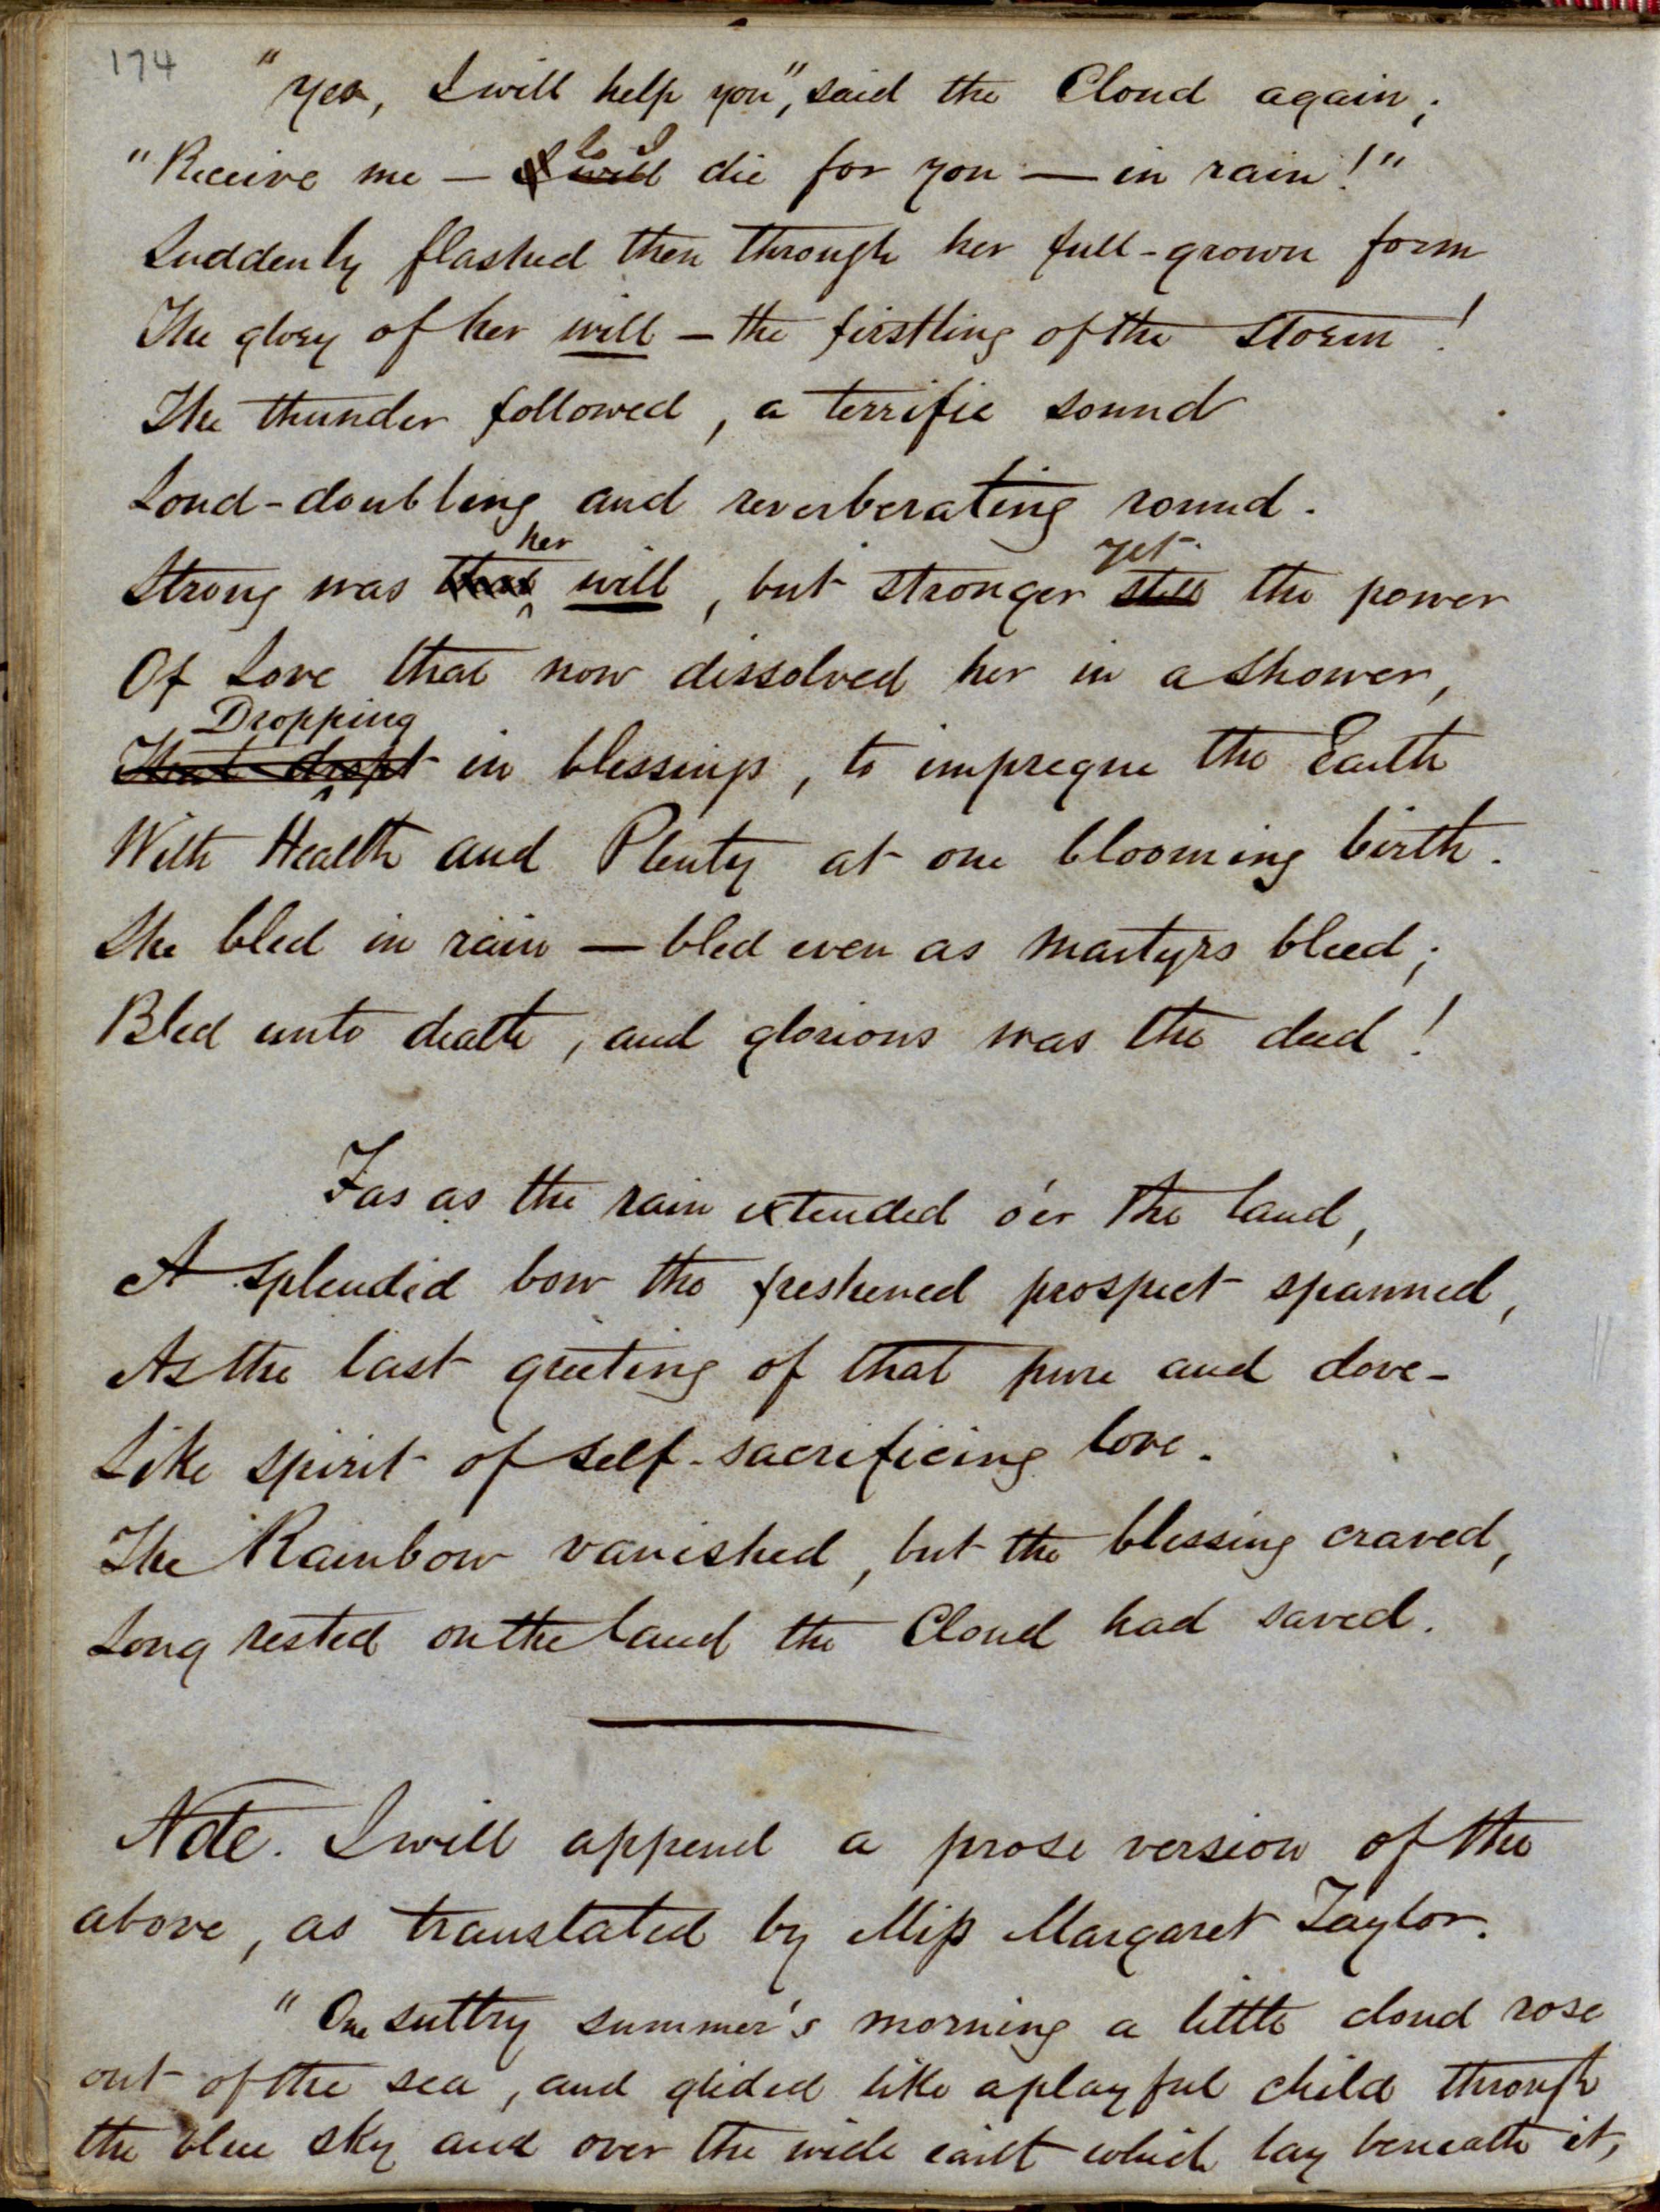 174
"Yes, I will help you", said the Cloud again;
"Receive me — lo I die for you — in rain!"
Suddenly flashed then through her full-grown form
The glory of her will — the firstling of the storm!
The thunder followed, a terrific sound
Loud-doubling and reverberating round.
Strong was her will, but stronger yet the power
Of Love that now dissolved her in a shower,
Dropping in blessings, to impregne the Earth
With Health and Plenty at one blooming birth.
She bled in rain — bled even as martyrs bleed;
Bled unto death, and glorious was the deed!
Far as the rain extended o'er the land,
A splendid bow the freshened prospect spanned,
As the last greeting of that pure and dove-
Like spirit of self-sacrificing love.
The Rainbow vanished, but the blessing craved,
Long rested on the land the Cloud had saved.
Note. I will append a prose version of the
above, as translated by Miss Margaret Taylor.
"One sultry summer's morning a little cloud rose
out of the sea, and glided like a playful child through
the blue sky and over the wide earth which lay beneath it,